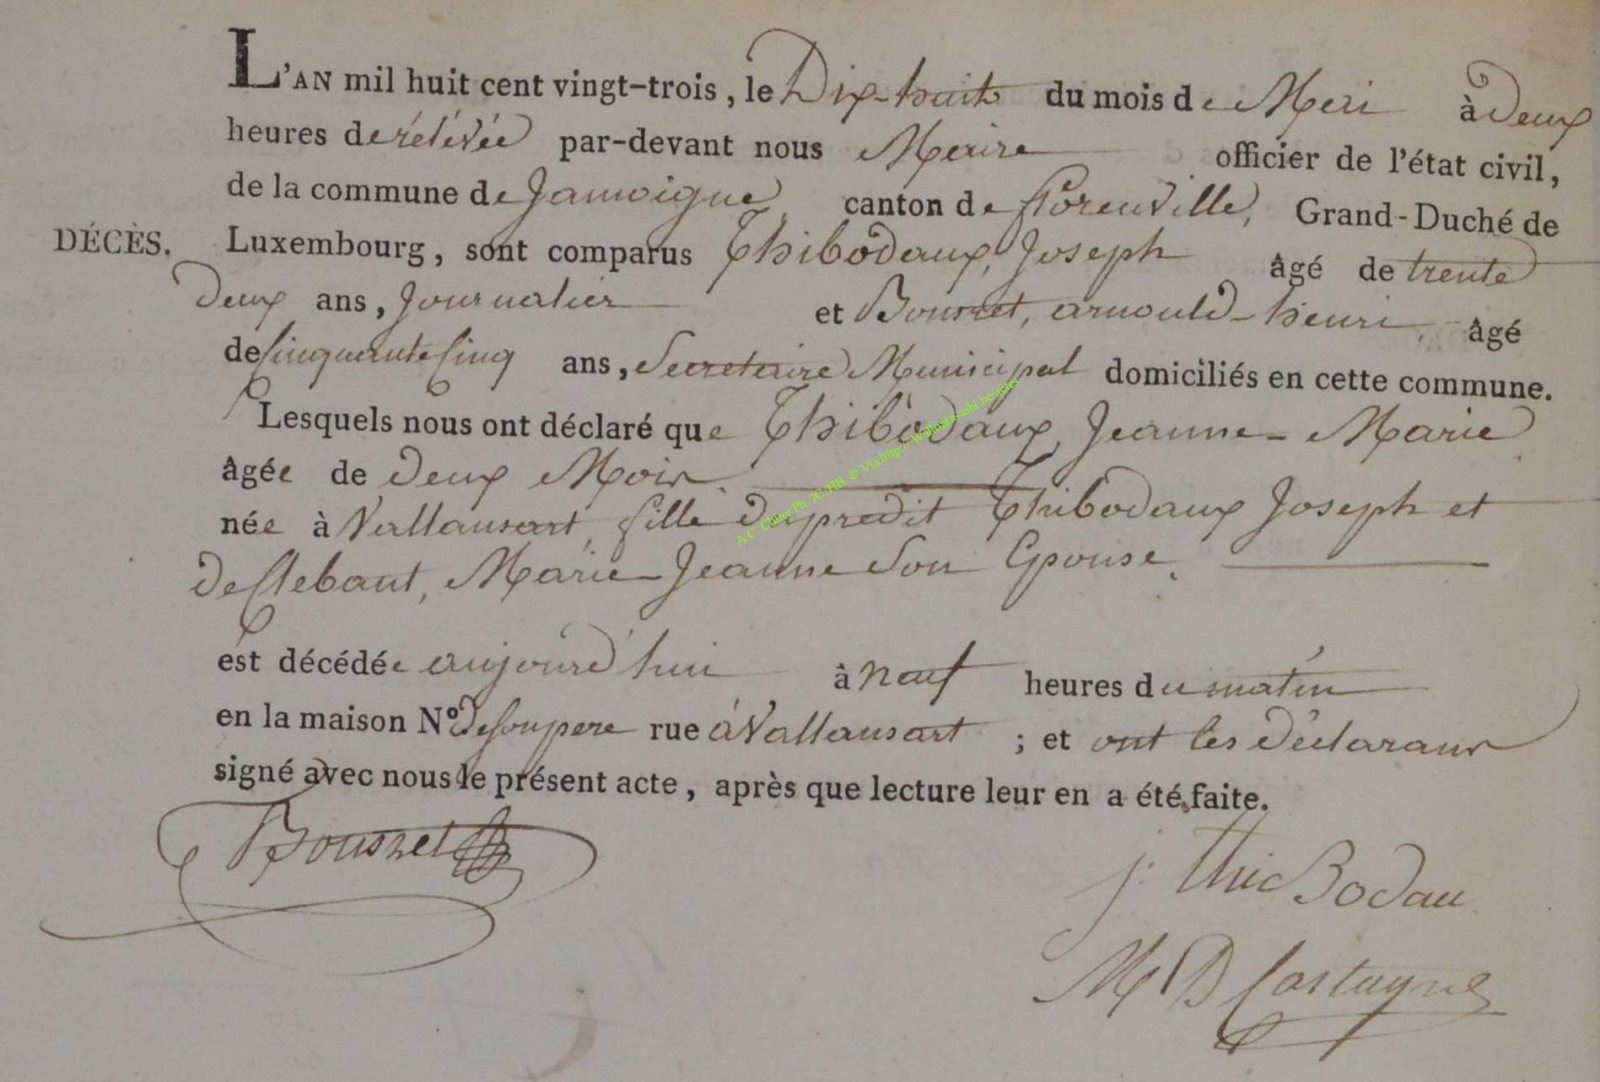 L'AN mil huit cent vingt-trois, le Dix-huit du mois de Mai à Deux
heures de rélévée par-devant nous Maire officier de l'état civil,
de la commune de Jamoigne, canton de florenville, Grand-Duché de
DÉCÈS. Luxembourg, sont comparus Thibodaux, Joseph âgé de trente
Deux ans, Journalier et Bousset, arnould-henri âgé
de Cinquante Cinq ans, Secretaire Municipal domiciliés en cette commune.
Lesquels nous ont déclaré que Thibodaux, Jeanne-Marie
âgée de Deux Mois
née à Vallansart, fille du predit Thibodaux Joseph et
De Clebant, Marie-Jeanne Son Epouse.
est décédée aujourd'hui à neuf heures du matin
en la maison N° de Son pere rue à Vallansart ; et ont les Déclarans
signé avec nous le présent acte, après que lecture leur en a été faite.
Bousset
j: thieBodau
M D Castagne